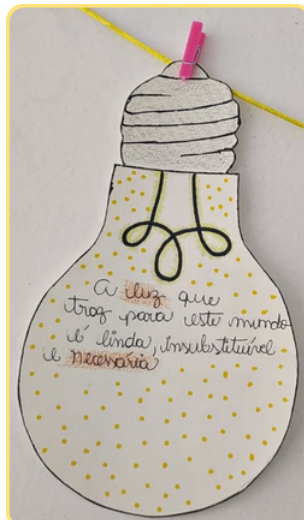 A luz que
traz para este mundo
é linda, insubstituível
e necessária